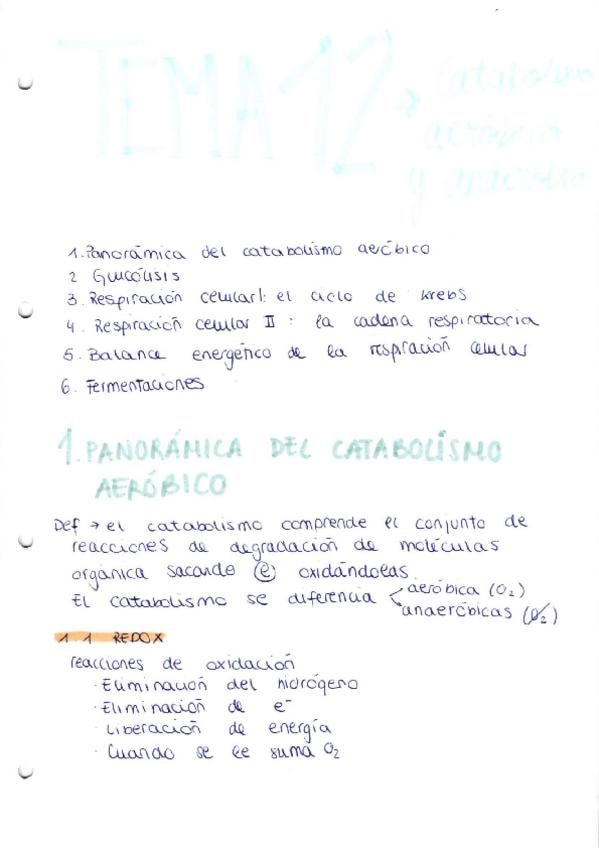 TEMA 12
Catabolismo
aeróbico
y anaerobio
1. Panorámica del catabolismo aeróbico
2 Glucólisis
3. Respiración celular I: el ciclo de krebs
4. Respiración celular II: la cadena respiratoria
5. Balance energético de la respiración celular
6. Fermentaciones
1. PANORÁMICA DEL CATABOLISMO
AERÓBICO
Def → el catabolismo comprende el conjunto de
reacciones de degradación de moléculas
orgánica sacando (e) oxidándolas
El catabolismo se diferencia aeróbica (O₂)
anaeróbicas (O₂)
1.1 REDOX
reacciones de oxidación
· Eliminación del hidrógeno
· Eliminación de e⁻
· Liberación de energía
· Cuando se le suma O₂